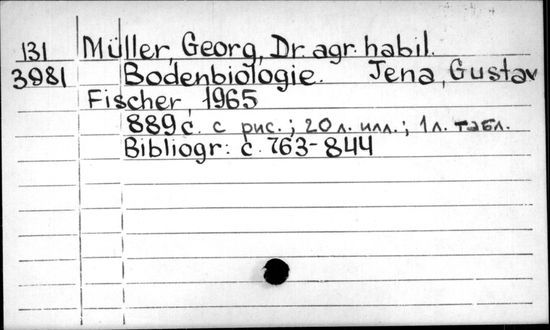 131 Müller, Georg, Dr. agr. habil.
3981 Bodenbiologie. Jena, Gustav
Fischer, 1965
889 с. с рис.; 20 л. илл.; 1 л. табл.
Bibliogr: с. 763-844